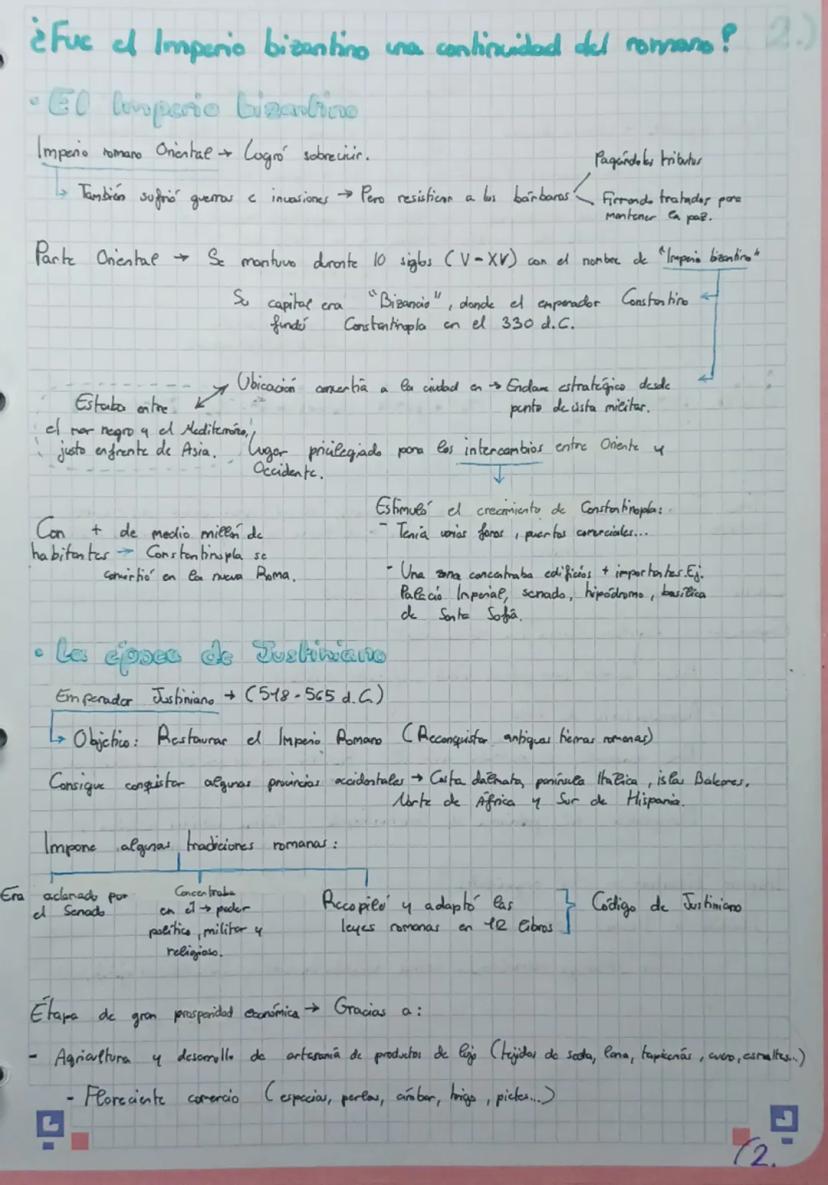 ¿Fue el Imperio bizantino una continuidad del romano? 2.)
• El Imperio bizantino
Imperio romano Oriental → Logró sobrevivir.
Pagándoles tributos
↳ También sufrió guerras e invasiones → Pero resistieron a los bárbaros
Firmando tratados para
mantener la paz.
Parte Oriental → Se mantuvo durante 10 siglos (V-XV) con el nombre de "Imperio bizantino"
Su capital era "Bizancio", donde el emperador Constantino
fundó Constantinopla en el 330 d.C.
Ubicación convertía a la ciudad en → Enclave estratégico desde
punto de vista militar.
Estaba entre
el mar negro y el Mediterráneo,
justo enfrente de Asia.
Lugar privilegiado para los intercambios entre Oriente y
Occidente.
Estimuló el crecimiento de Constantinopla:
- Tenía varios foros, puertos comerciales...
Con + de medio millón de
habitantes → Constantinopla se
convirtió en la nueva Roma.
- Una zona concentraba edificios + importantes. Ej.
Palacio Imperial, senado, hipódromo, basílica
de Santa Sofía.
• La época de Justiniano
Emperador Justiniano → (518-565 d.C.)
↳ Objetivo: Restaurar el Imperio Romano (Reconquistar antiguas tierras romanas)
Consigue conquistar algunas provincias occidentales → Costa dálmata, península Itálica, islas Baleares,
Norte de África y Sur de Hispania.
Impone algunas tradiciones romanas:
Era aclamado por
el Senado
Concentraba
en él → poder
político, militar y
religioso.
Recopiló y adaptó las
leyes romanas en 12 libros
Código de Justiniano
Etapa de gran prosperidad económica → Gracias a:
- Agricultura y desarrollo de artesanía de productos de lujo (tejidos de seda, lana, tapicerías, cuero, esmaltes...)
- Floreciente comercio (especias, perlas, ámbar, trigo, pieles...)
12.